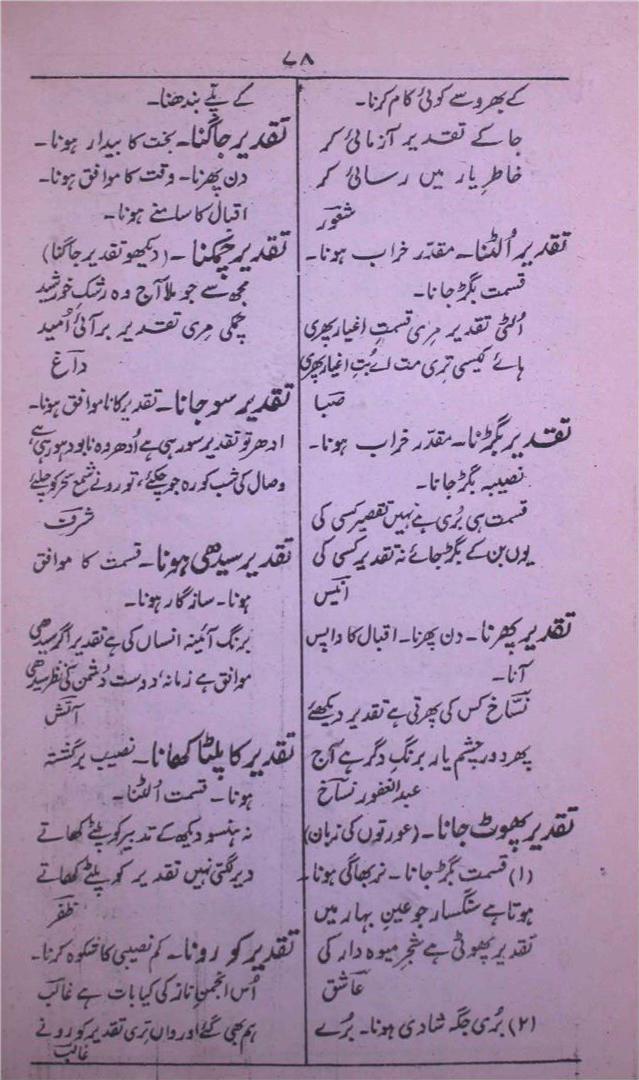 ۷۸
کے بھروسے کوئی کام کرنا۔
جا کے تقدیر آزمائی کر
خاطرِ یار میں رسائی کر
شعور
تقدیر اُلٹنا۔ مقدّر خراب ہونا۔
قسمت بگڑ جانا۔
اُلٹی تقدیر مِری قسمتِ اغیار پھری
ہائے کیسی تِری مت اے بُتِ اغیار پھری
صبا
تقدیر بگڑنا۔ مقدّر خراب ہونا۔
نصیبہ بگڑ جانا۔
قسمت ہی بُری ہے نہیں تقصیر کسی کی
یوں بن کے بگڑ جائے نہ تقدیر کسی کی
انیس
تقدیر پھرنا۔ دن پھرنا۔ اقبال کا واپس
آنا۔
نسّاخ کس کی پھرتی ہے تقدیر دیکھئے
پھر دورِ چشمِ یار برنگِ دگر ہے آج
عبد الغفور نسّاخ
تقدیر پھوٹ جانا۔ (عورتوں کی زبان)
(۱) قسمت بگڑ جانا۔ نربھاگی ہونا۔
ہوتا ہے سنگسار جو عینِ بہار میں
تقدیر پھوٹی ہے شجرِ میوہ دار کی
عاشق
(۲) بُری جگہ شادی ہونا۔ بُرے
کے پلّے بندھنا۔
تقدیر جاگنا۔ بخت کا بیدار ہونا۔
دن پھرنا۔ وقت کا موافق ہونا۔
اقبال کا سامنے ہونا۔
تقدیر چمکنا۔ (دیکھو تقدیر جاگنا)
مجھ سے جو ملا آج وہ رشکِ خورشید
چمکی مِری تقدیر بر آئی اُمید
داغ
تقدیر سو جانا۔ تقدیر کا ناموافق ہونا۔
ادھر تو تقدیر سو رہی ہے اُدھر وہ نابود ہو رہی ہے،
وصال کی شب کو رہ جو چکئے، تو رونے شمعِ سحر کو چلئے
شرف
تقدیر سیدھی ہونا۔ قسمت کا موافق
ہونا۔ سازگار ہونا۔
برنگِ آئینہ انساں کی ہے تقدیر اگر سیدھی
موافق ہے زمانہ، دوست دُشمن کی نظر سیدھی
آتش
تقدیر کا پلٹا کھانا۔ نصیب برگشتہ
ہونا۔ قسمت اُلٹنا۔
نہ ہنسو دیکھ کے تدبیر کو پلٹے کھاتے
دیر لگتی نہیں تقدیر کو پلٹے کھاتے
ظفر
تقدیر کو رونا۔ کم نصیبی کا شکوہ کرنا۔
اُس انجمنِ ناز کی کیا بات ہے غالب
ہم بھی گئے اور واں تِری تقدیر کو رونے
غالب